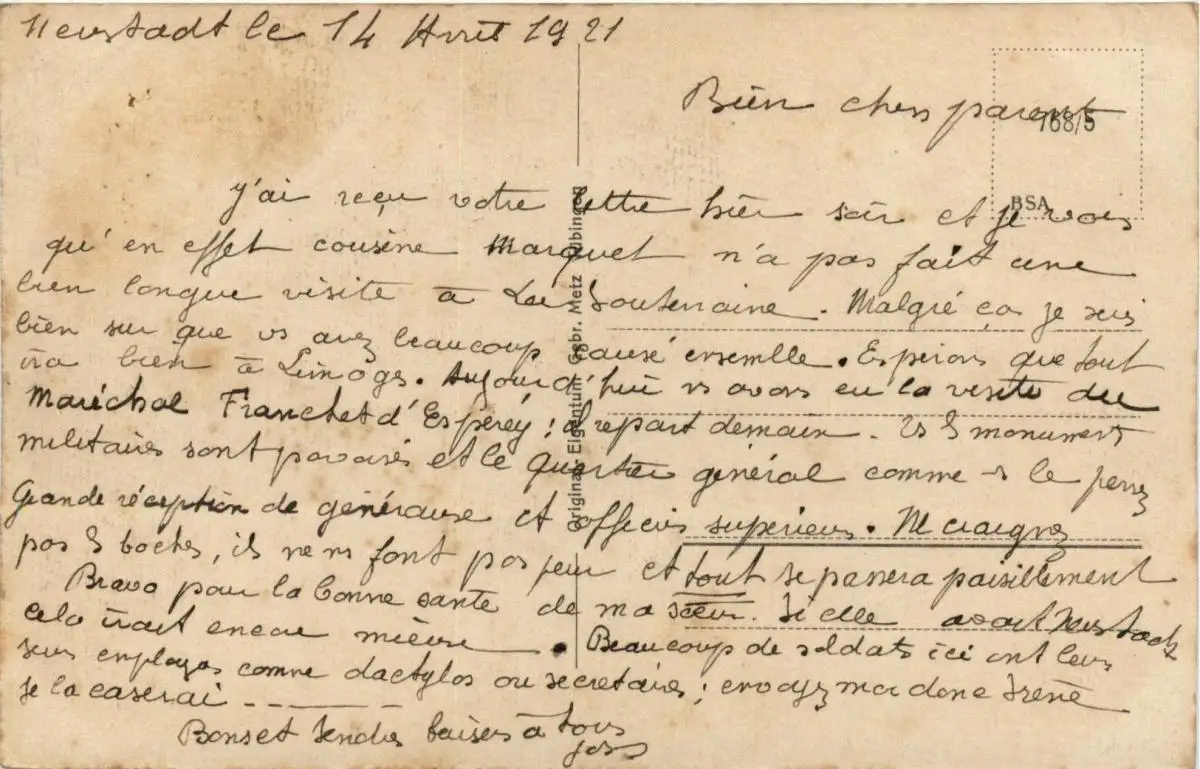 Neustadt le 14 Avril 1921
Bien chers parents
768/5
BSA
j'ai reçu votre lettre hier soir et je vois
qu'en effet cousine Marquet n'a pas fait une
bien longue visite à La Souterraine. Malgré ça je suis
bien sur que vs avez beaucoup causé ensemble. Espérons que tout
ira bien à Limoges. Aujourd'hui ns avons eu la visite du
Maréchal Franchet d'Espérey ; il repart demain. Ts ls monuments
militaires sont pavoisés et le quartier général comme le pensez
Grande réception de généraux et officiers supérieurs. Ne craignez
pas ls boches, ils ne ns font pas peur et tout se passera paisiblement
Bravo pour la bonne santé de ma sœur. Si elle avait Neustadt
cela irait encore mieux. Beaucoup de soldats ici ont leurs
employés comme dactylos ou secrétaires ; envoyez moi donc Irène
je la caserai
Bons et tendres baisers à tous
Original-Eigentum Gebr. Metz Tübingen